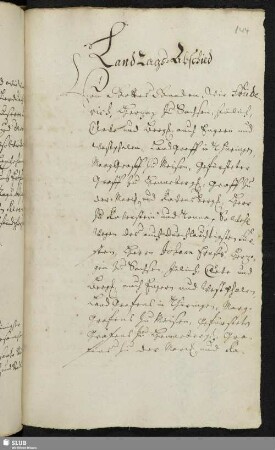 Land Tags-Abschied
Von Gottes Gnaden, Wir Friede
rich, Herzog zu Sachsen, Jülich,
Cleve und Bergk, auch Engern und
Westphalen, Landgraff in Thüringen,
Marggraff zu Meißen, Gefürsteter
Graff zu Hennebergk, Graff zu
der Marck und Ravensbergk, Herr
zu Ravenstein und Tonna,
sten, Herrn Johann Herzo
zu Sachsen, Jülich, Cleve und
Bergk, auch Engern und Westphalen,
Landgrafens in Thüringen, Marg
grafens zu Meißen, Gefürsteten
Grafens zu Hennebergk, Gra
fens zu der Marck und Ra
SLUB